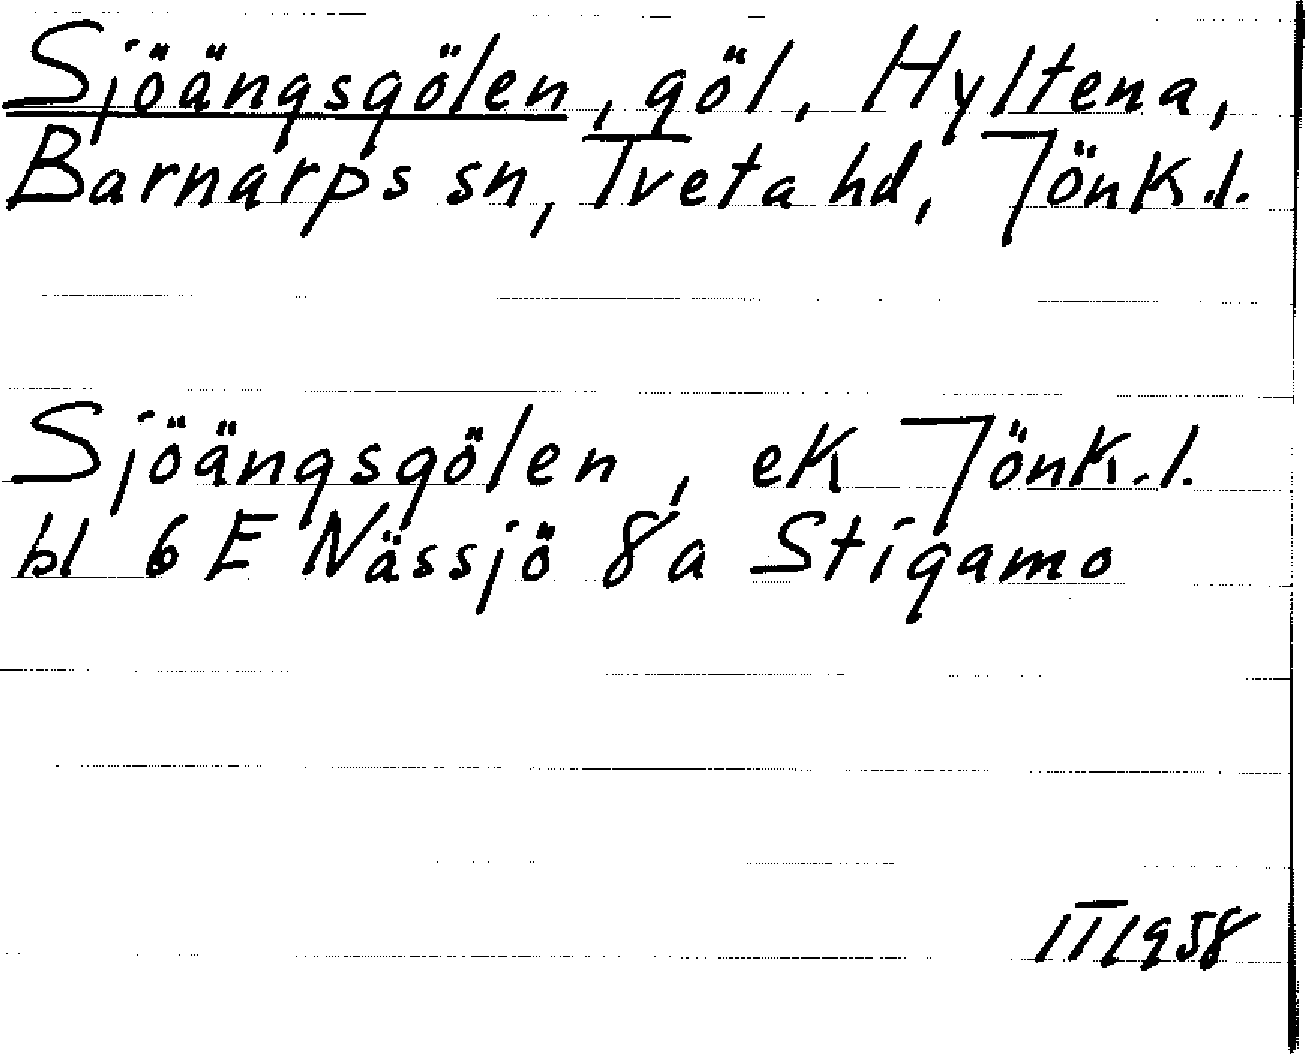 Sjöängsgölen, göl, Hyltena,
Barnarps sn, Tveta hd, Jönk.l.
Sjöängsgölen, ek Jönk.l.
bl 6 E Nässjö 8a Stigamo
IT 1958